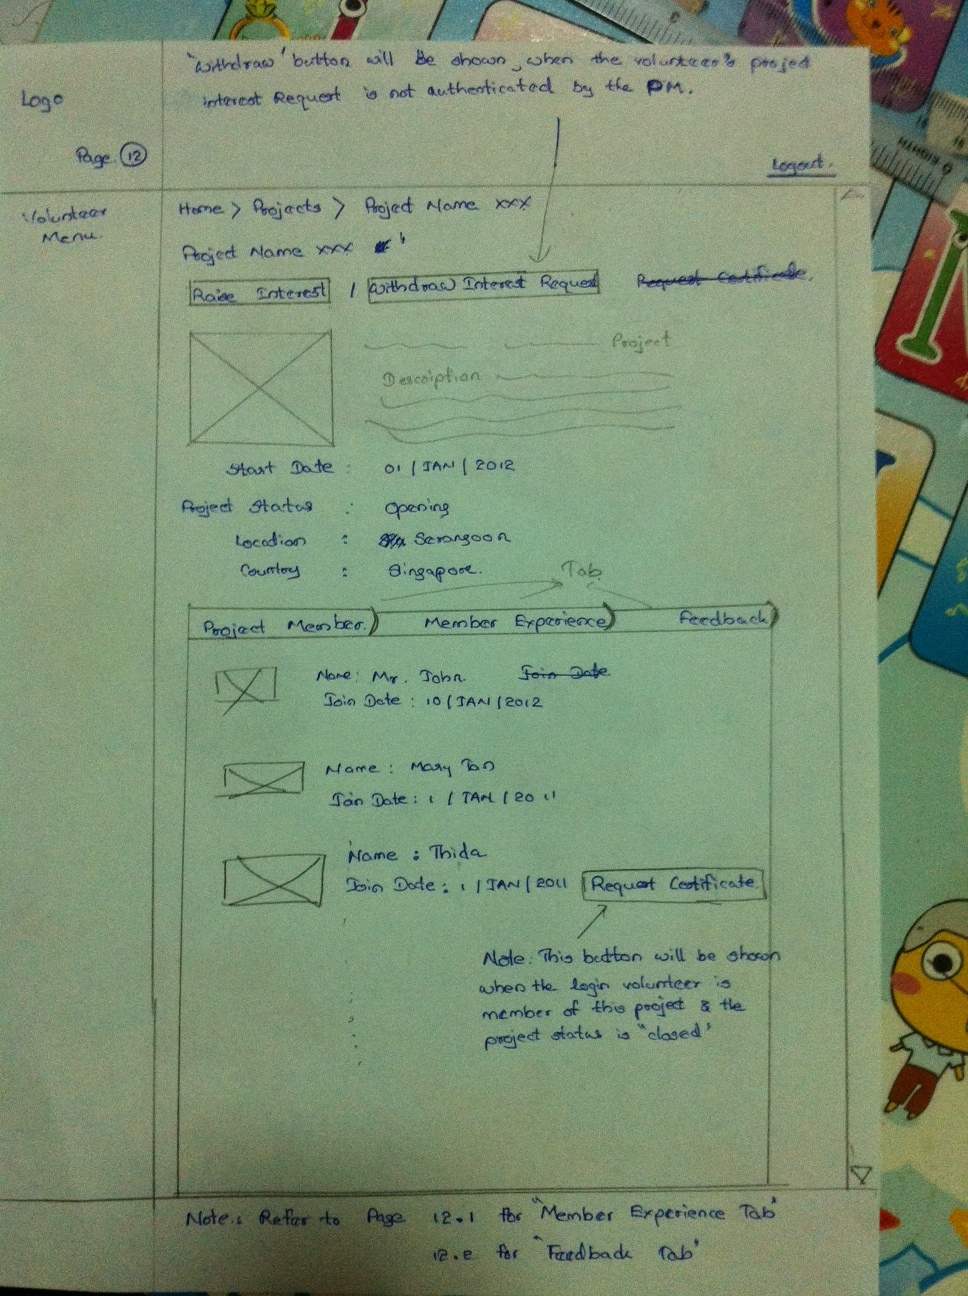 'Withdraw' button will be shown, when the volunteer's project
interest Request is not authenticated by the PM.
Logo
Page. 12
Logout.
Volunteer
Menu.
Home > Projects > Project Name xxx
Project Name xxx
Raise Interest / Withdraw Interest Request Request Certificate.
Project
Description
Start Date : 01 / JAN / 2012
Project Status : Opening
Location : Serangoon
Country : Singapore.
Tab
Project Member Member Experience Feedback
Name: Mr. John Join Date
Join Date : 10 / JAN / 2012
Name : Mary Tan
Join Date : 1 / JAN / 2011
Name : Thida
Join Date : 1 / JAN / 2011 Request Certificate
Note: This button will be shown
when the login volunteer is
member of this project & the
project status is "closed"
Note: Refer to Page 12.1 for "Member Experience Tab"
12.2 for "Feedback Tab"